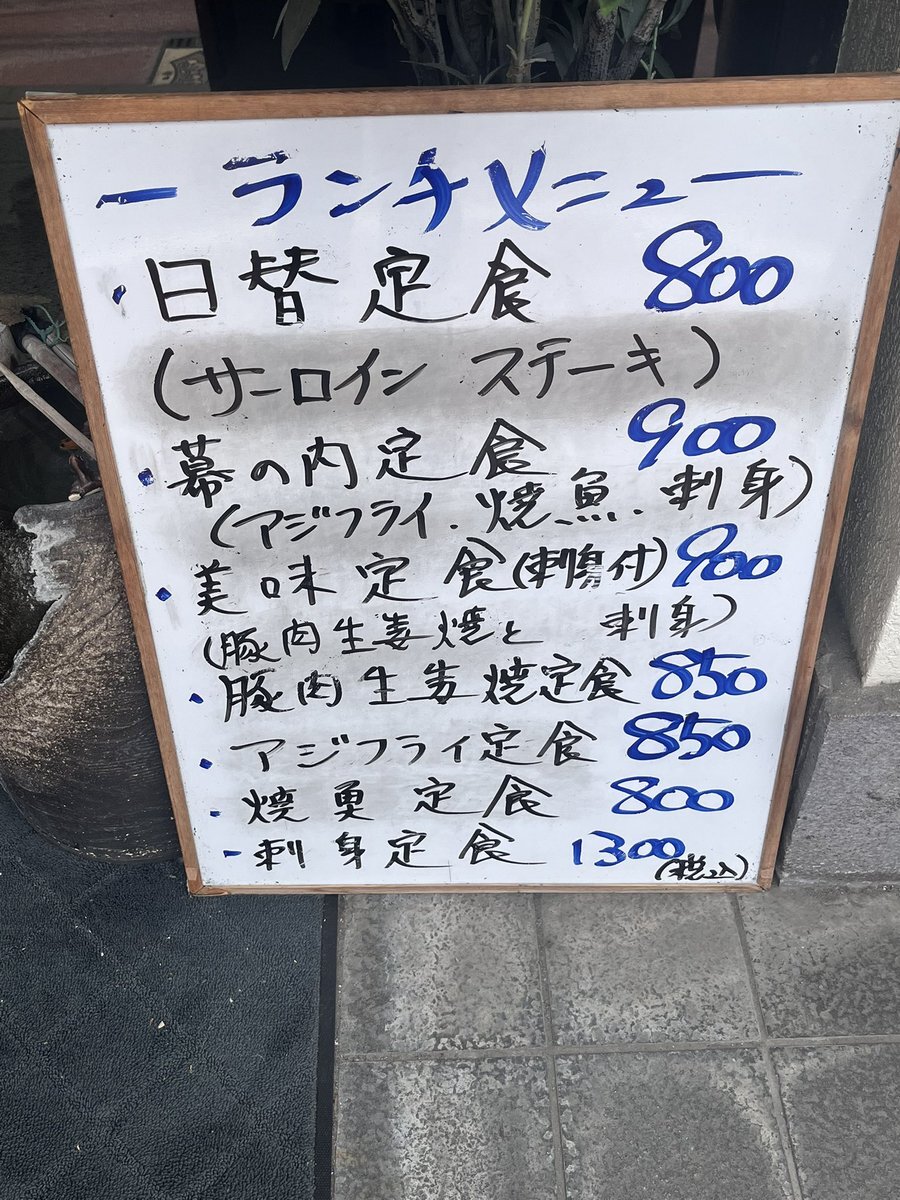 ー ランチメニュー
・日替定食 800
(サーロイン ステーキ)
・幕の内定食 900
(アジフライ.焼魚.刺身)
・美味定食(刺身付) 900
(豚肉生姜焼と 刺身)
・豚肉生姜焼定食 850
・アジフライ定食 850
・焼魚定食 800
・刺身定食 1300
(税込)